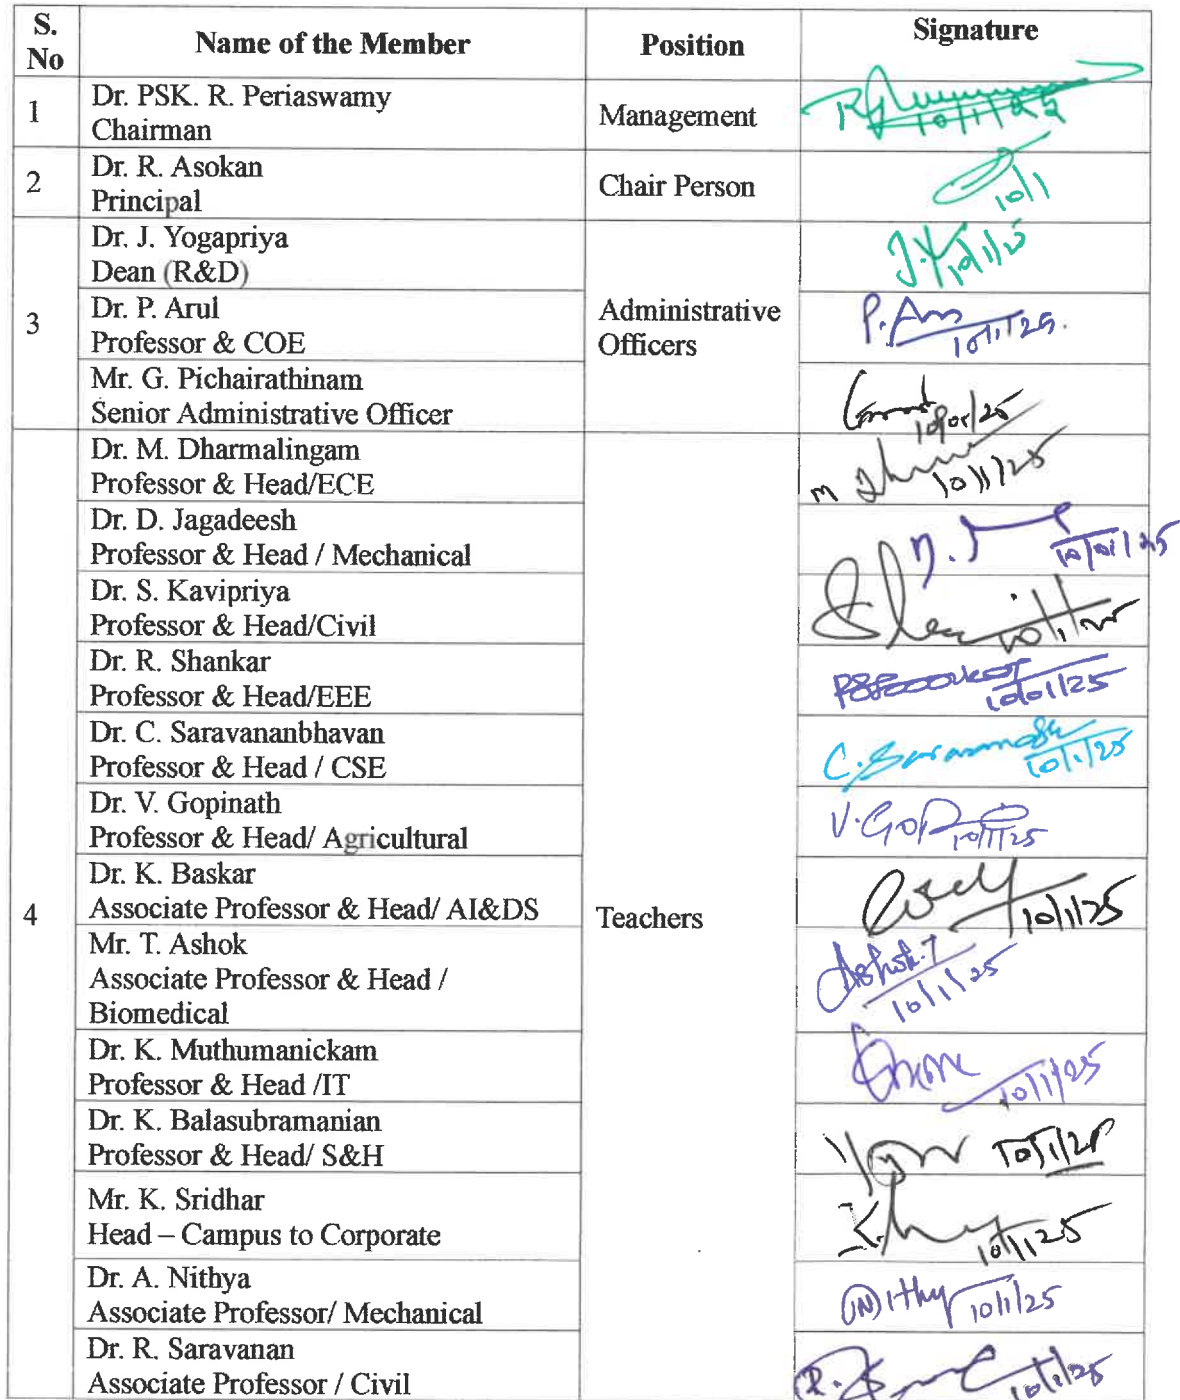 S. No Name of the Member Position Signature
1 Dr. PSK. R. Periaswamy
Chairman Management 10/1/25
2 Dr. R. Asokan
Principal Chair Person 10/1
3 Dr. J. Yogapriya
Dean (R&D) Administrative Officers J.Y 10/1/25
Dr. P. Arul
Professor & COE 10/1/25.
Mr. G. Pichairathinam
Senior Administrative Officer 10/01/25
4 Teachers
Dr. M. Dharmalingam
Professor & Head/ECE 10/1/25
Dr. D. Jagadeesh
Professor & Head / Mechanical 10/01/25
Dr. S. Kavipriya
Professor & Head/Civil 10/1/25
Dr. R. Shankar
Professor & Head/EEE 10/01/25
Dr. C. Saravananbhavan
Professor & Head / CSE 10/1/25
Dr. V. Gopinath
Professor & Head/ Agricultural V. Gop 10/1/25
Dr. K. Baskar
Associate Professor & Head/ AI&DS 10/1/25
Mr. T. Ashok
Associate Professor & Head /
Biomedical Ashok.T 10/1/25
Dr. K. Muthumanickam
Professor & Head /IT 10/1/25
Dr. K. Balasubramanian
Professor & Head/ S&H 10/1/25
Mr. K. Sridhar
Head – Campus to Corporate 10/1/25
Dr. A. Nithya
Associate Professor/ Mechanical Nithy 10/1/25
Dr. R. Saravanan
Associate Professor / Civil 10/1/25